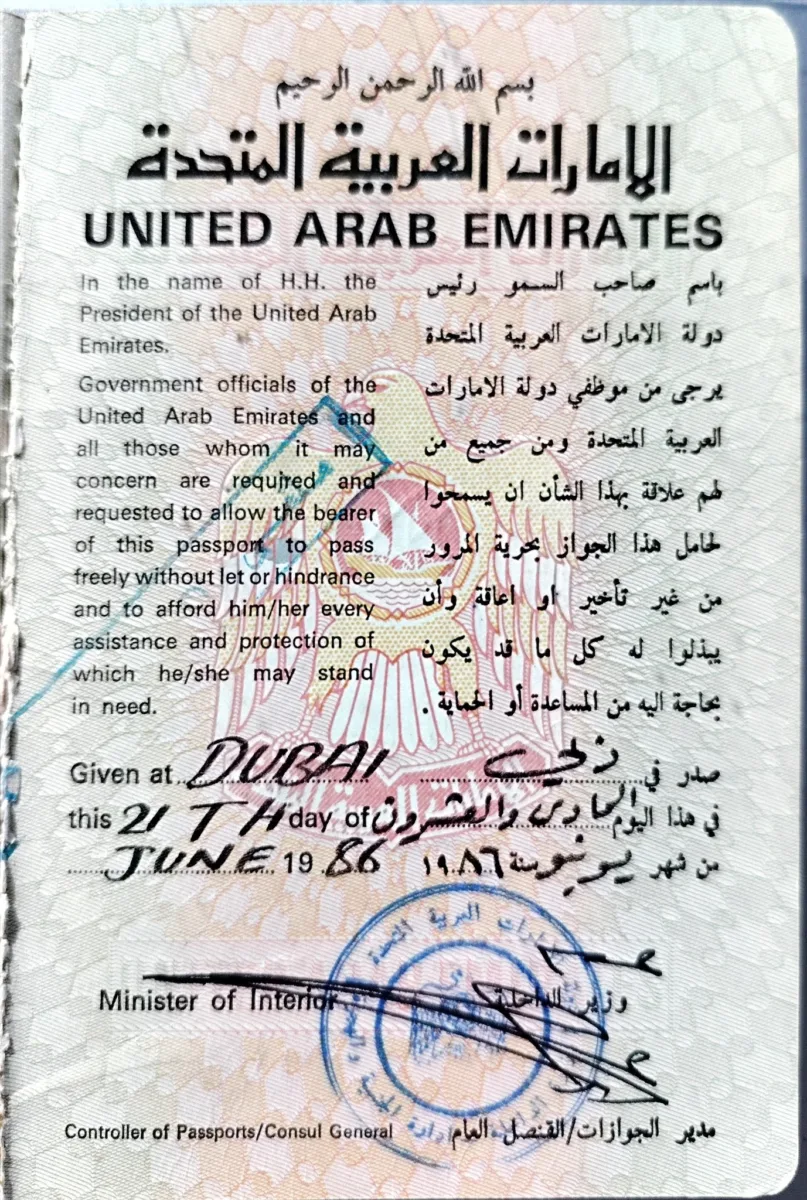 بسم الله الرحمن الرحيم
الامارات العربية المتحدة
UNITED ARAB EMIRATES
In the name of H.H. the
President of the United Arab
Emirates.
Government officials of the
United Arab Emirates and
all those whom it may
concern are required and
requested to allow the bearer
of this passport to pass
freely without let or hindrance
and to afford him/her every
assistance and protection of
which he/she may stand
in need.
باسم صاحب السمو رئيس
دولة الامارات العربية المتحدة
يرجى من موظفي دولة الامارات
العربية المتحدة ومن جميع من
لهم علاقة بهذا الشأن ان يسمحوا
لحامل هذا الجواز بحرية المرور
من غير تأخير او اعاقة وأن
يبذلوا له كل ما قد يكون
بحاجة اليه من المساعدة أو الحماية .
Given at DUBAI
صدر في دبي
this 21 TH day of
في هذا اليوم الحادى والعشرون
JUNE 19 86
من شهر يونيو سنة ١٩٨٦
Minister of Interior
وزير الداخلية
Controller of Passports/Consul General
مدير الجوازات/القنصل العام